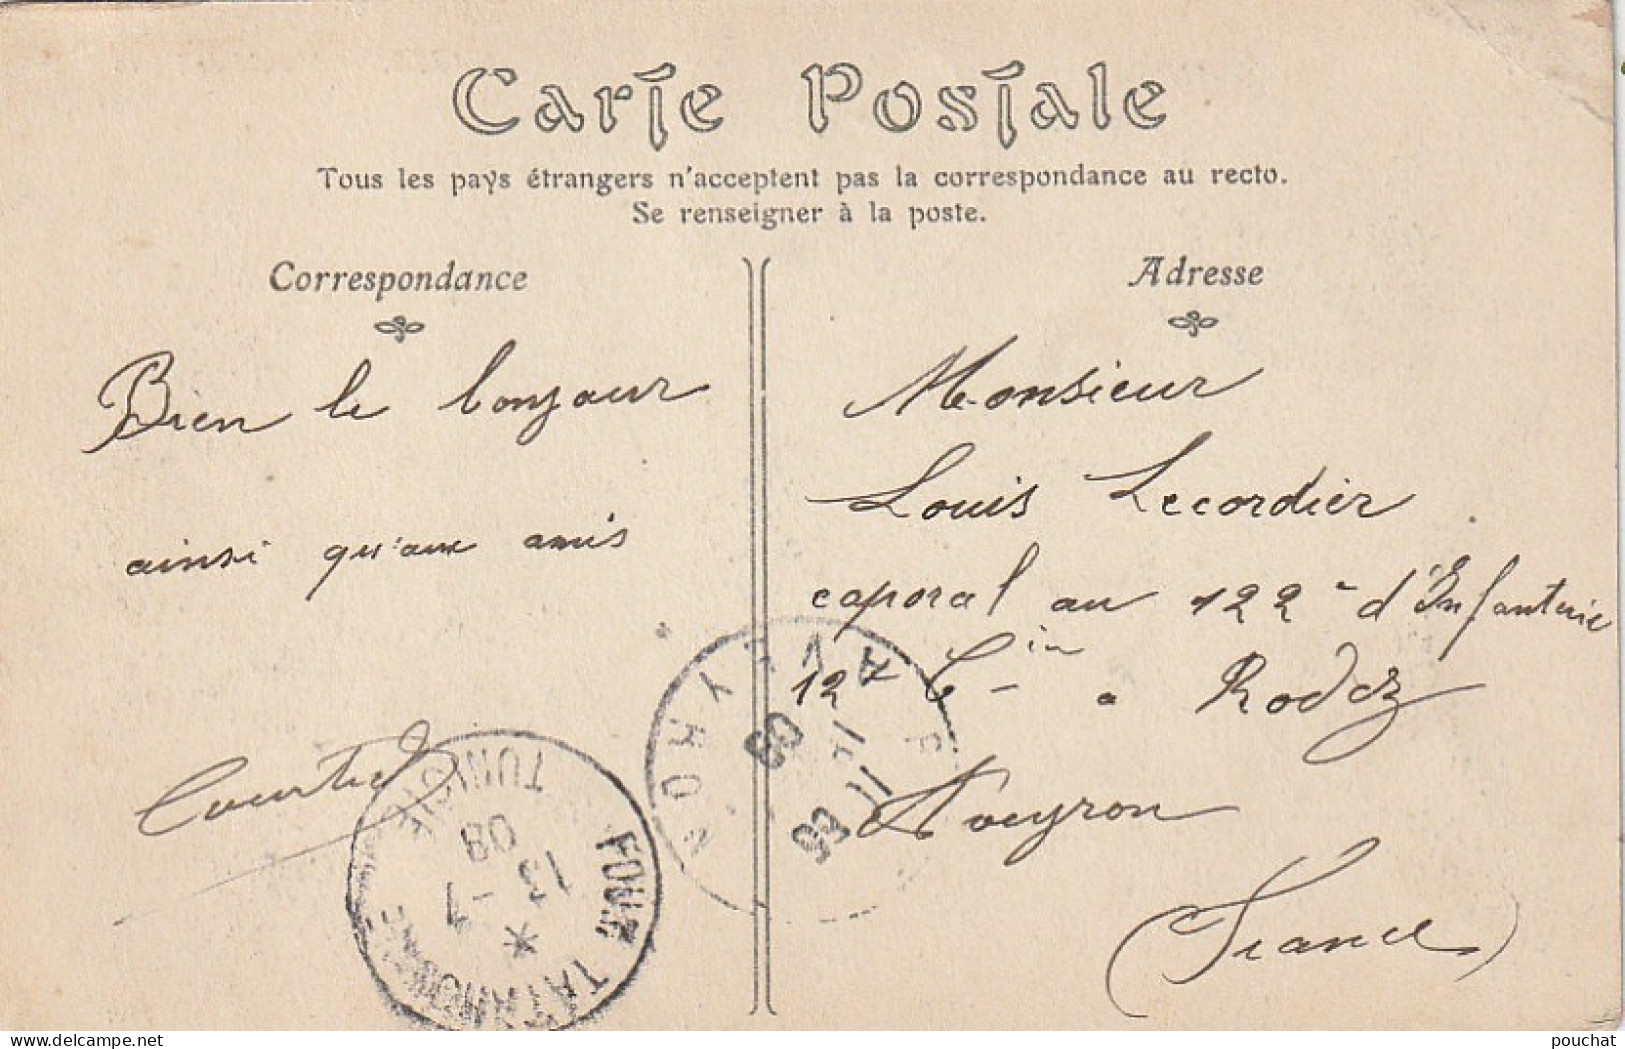 Carte Postale
Tous les pays étrangers n'acceptent pas la correspondance au recto.
Se renseigner à la poste.
Correspondance
Bien le bonjour
ainsi qu'aux amis
Adresse
Monsieur
Louis Lecordier
caporal au 122e d'Infanterie
12e Cie a Rodez
Aveyron
(France)
FOUM TATAHOUINE
TUNISIE
13 -7
08
AVEYRON
09
delcampe.net
pouchat